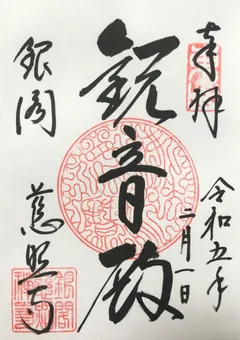 奉拝
令和五年
二月一日
観音殿
銀閣
慈照寺